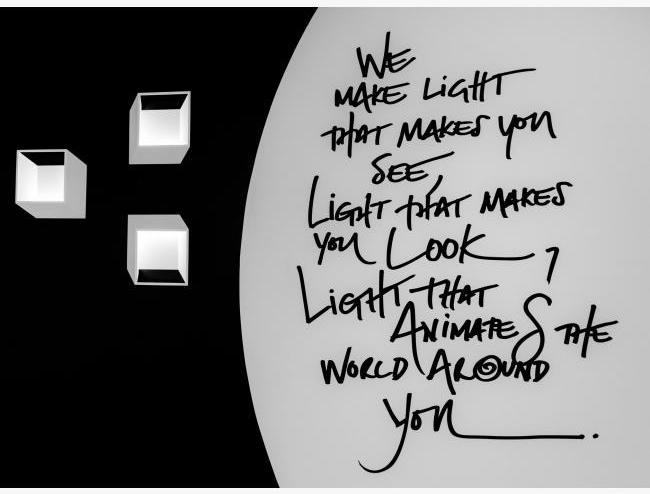 WE
MAKE LIGHT
THAT MAKES YOU
SEE,
LIGHT THAT MAKES
YOU LOOK,
LIGHT THAT
ANIMATES THE
WORLD AROUND
YOU.